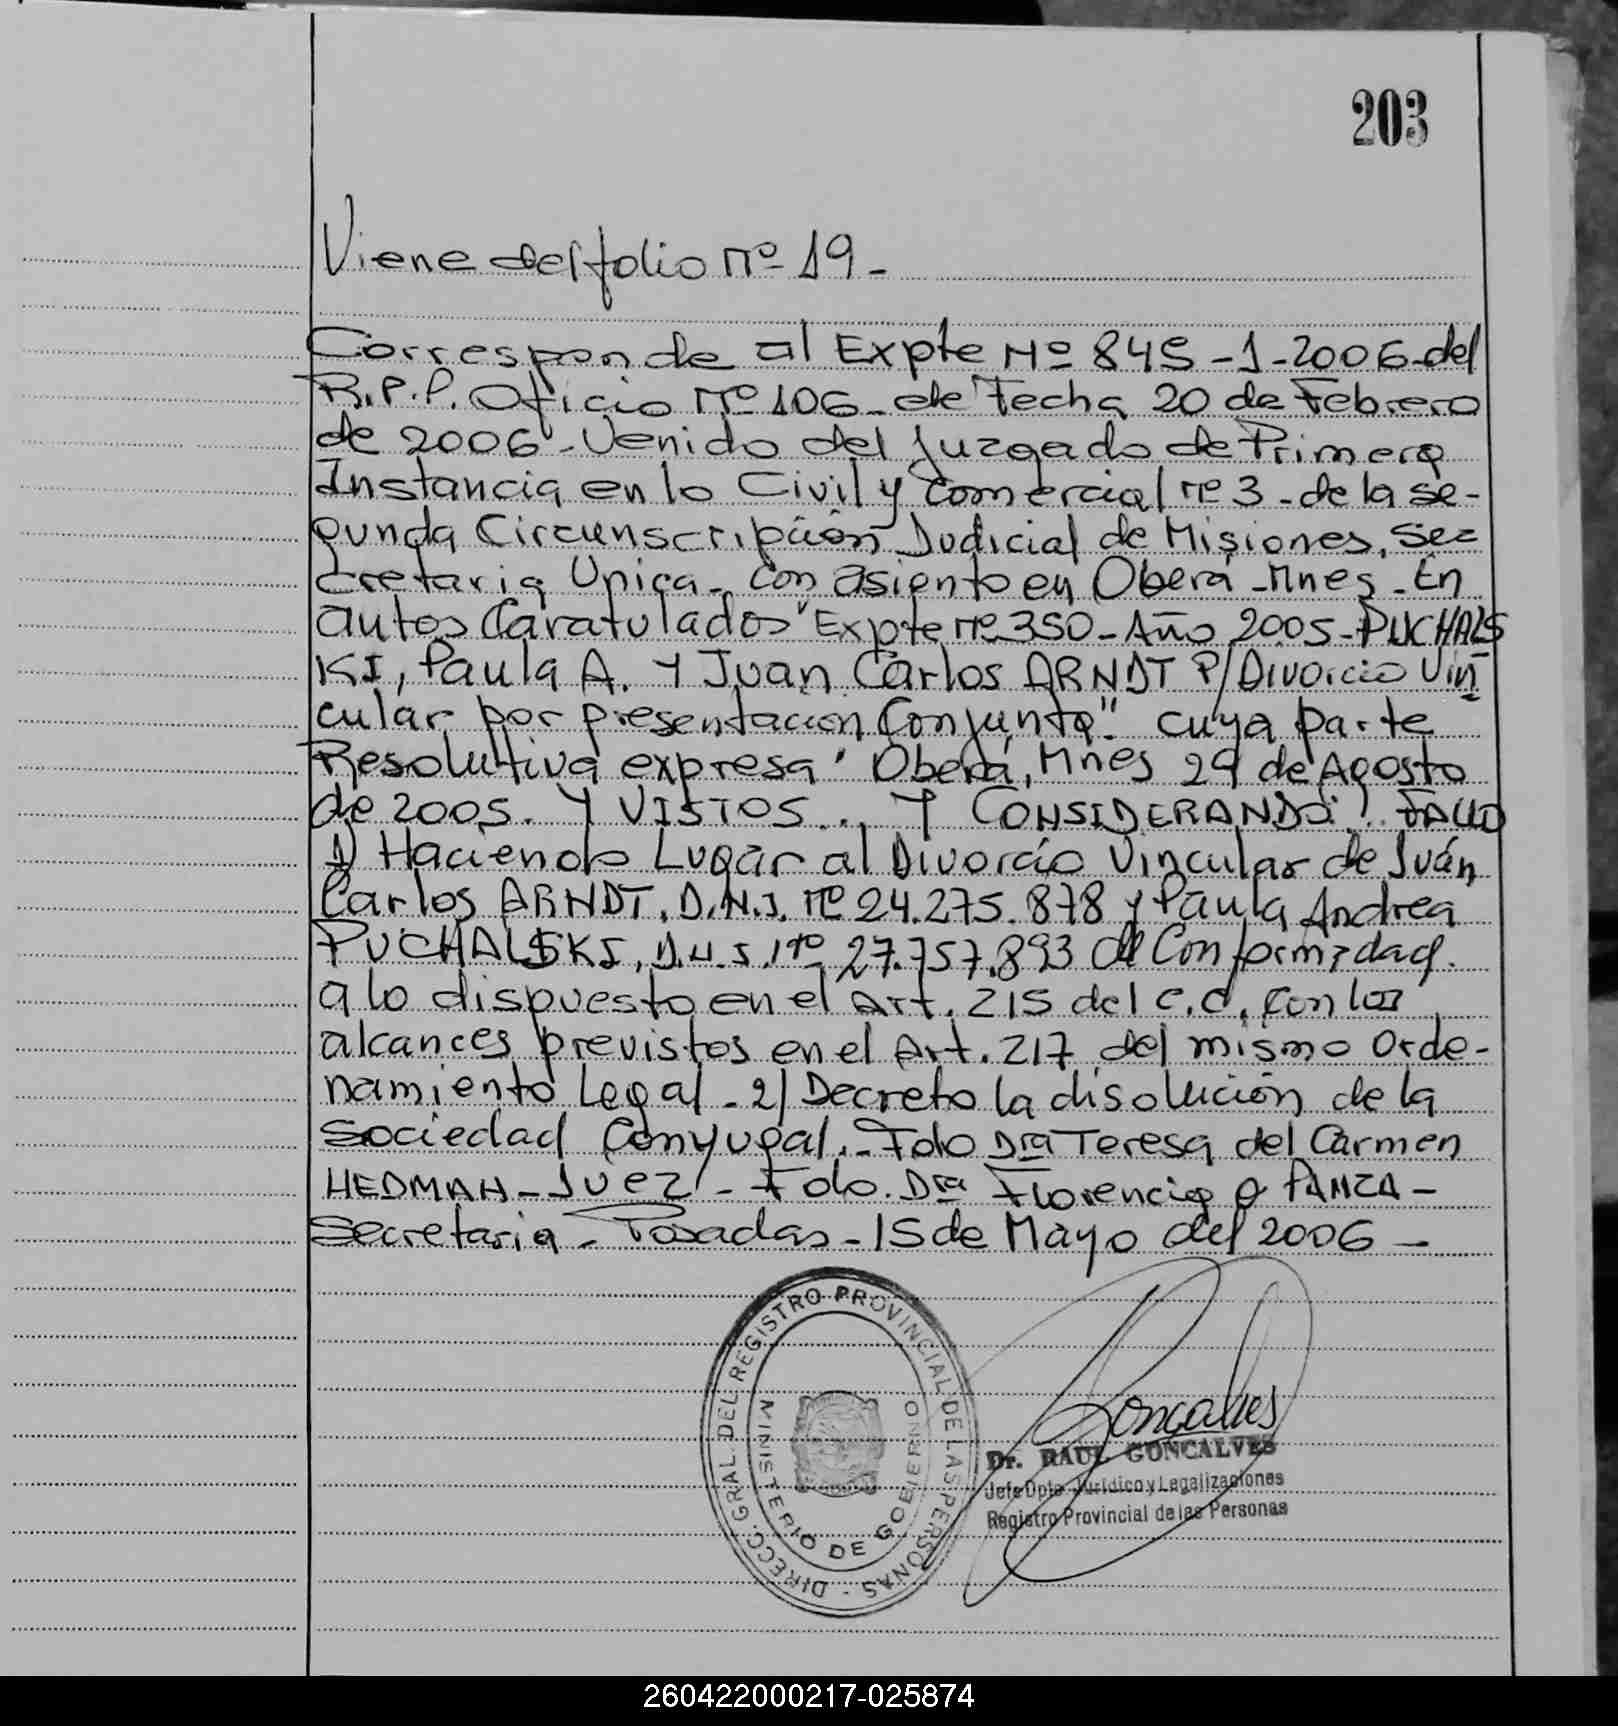 203
Viene del folio Nº 19-
Corresponde al Expte Nº 845-1-2006-del
R.P.P. Oficio Nº 106-de Fecha 20 de Febrero
de 2006-Venido del Juzgado de Primera
Instancia en lo Civil y Comercial Nº 3-de la Se-
gunda Circunscripción Judicial de Misiones, Sec
cretaria Unica-con asiento en Obera-Mnes-En
autos Caratulados "Expte Nº 350-Año 2005-PUCHALS
KI, Paula A. Y Juan Carlos ARNDT P/Divorcio Vin
cular por presentacion Conjunta". cuya parte
Resolutiva expresa "Oberá, Mnes 29 de Agosto
de 2005. Y VISTOS... Y CONSIDERANDO: FALLO
1) Haciendo Lugar al Divorcio Vincular de Juán
Carlos ARNDT. D.N.I. Nº 24.275.878 y Paula Andrea
PUCHALSKI, D.N.I. Nº 27.757.893 de Conformidad
a lo dispuesto en el Art. 215 del C.C. con los
alcances previstos en el Art. 217 del mismo Orde-
namiento Legal-2) Decreto la disolución de la
Sociedad Conyugal.-Fdo Dra Teresa del Carmen
HEDMAN-Juez-Fdo. Dra Florencia PANZA-
Secretaria-Posadas-15 de Mayo del 2006-
DIRECC. GRAL DEL REGISTRO PROVINCIAL DE LAS PERSONAS -
MINISTERIO DE GOBIERNO
Goncalves
Dr. RAUL GONCALVES
Jefe Dpto Jurídico y Legalizaciones
Registro Provincial de las Personas
260422000217-025874